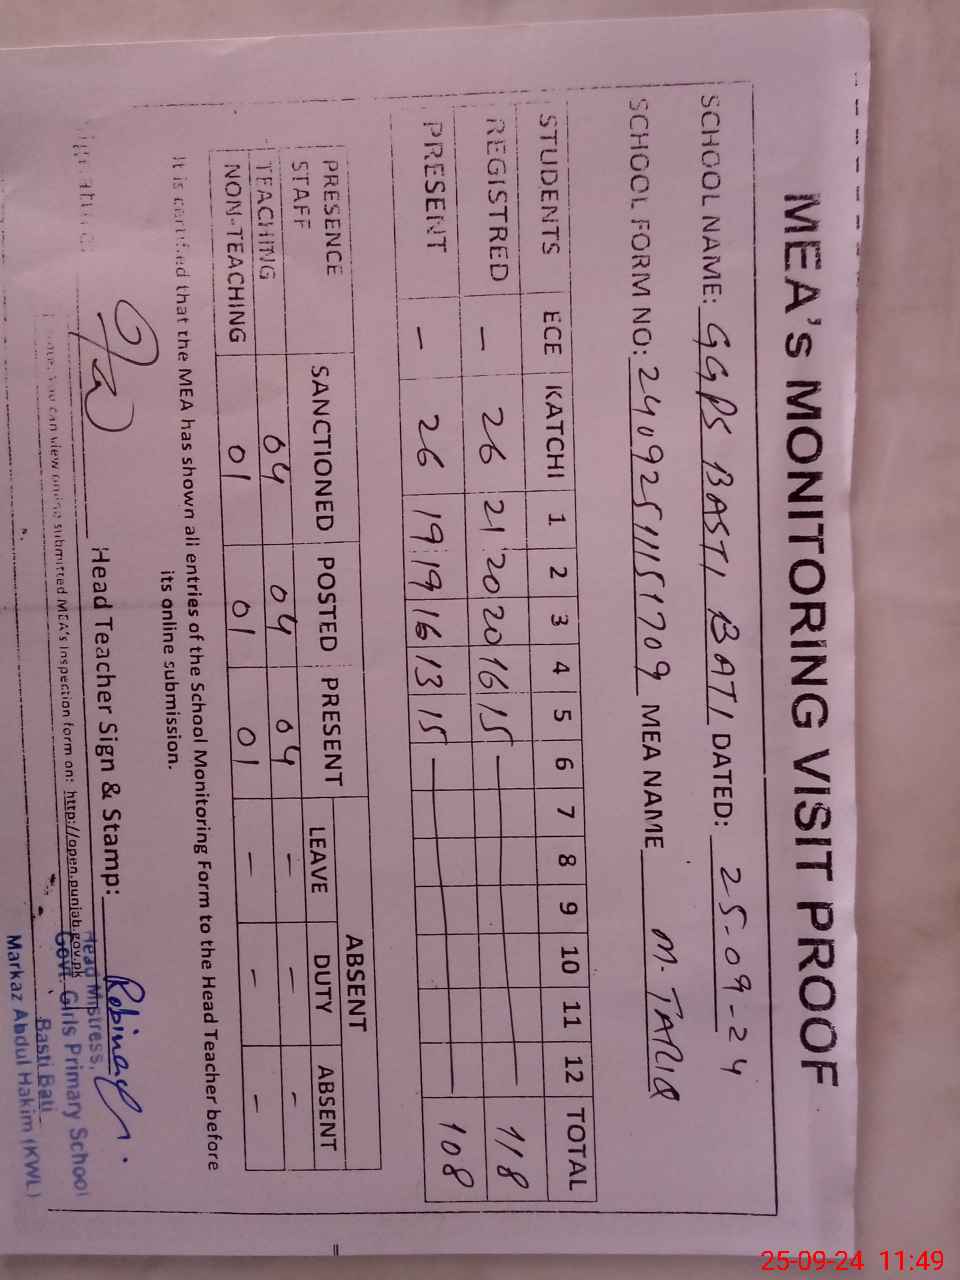 MEA's MONITORING VISIT PROOF
SCHOOL NAME: GGPS BASTI BATI DATED: 25-09-24
SCHOOL FORM NO: 24092511151709 MEA NAME M. TARIQ
STUDENTS ECE KATCHI 1 2 3 4 5 6 7 8 9 10 11 12 TOTAL
REGISTRED - 26 21 20 20 16 15 - 118
PRESENT - 26 19 19 16 13 15 - 108
PRESENCE STAFF SANCTIONED POSTED PRESENT ABSENT
LEAVE DUTY ABSENT
TEACHING 04 04 04 - - -
NON-TEACHING 01 01 01 - - -
It is certified that the MEA has shown all entries of the School Monitoring Form to the Head Teacher before
its online submission.
Signature: Head Teacher Sign & Stamp: Robina
Note: You can view online submitted MEA's Inspection form on: http://open.punjab.gov.pk
Head Mistress,
Govt. Girls Primary School
Basti Bati
Markaz Abdul Hakim (KWL)
25-09-24 11:49